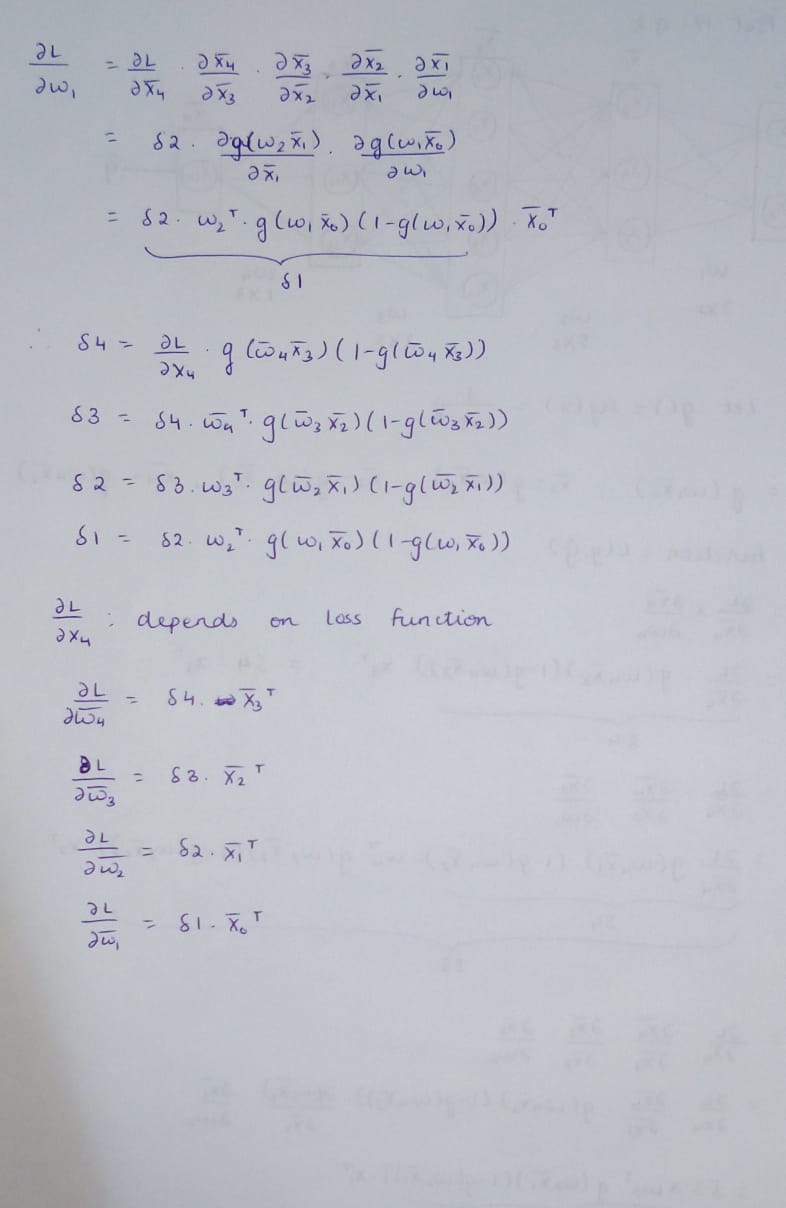 ∂L/∂w₁ = ∂L/∂x̄₄ · ∂x̄₄/∂x̄₃ · ∂x̄₃/∂x̄₂ · ∂x̄₂/∂x̄₁ · ∂x̄₁/∂w₁
= δ2 · ∂g(w₂x̄₁)/∂x̄₁ · ∂g(w₁x̄₀)/∂w₁
= δ2 · w₂ᵀ · g(w₁x̄₀)(1-g(w₁x̄₀)) · x̄₀ᵀ
δ1
∴ δ4 = ∂L/∂x₄ · g(w̄₄x̄₃)(1-g(w̄₄x̄₃))
δ3 = δ4 · w̄₄ᵀ · g(w̄₃x̄₂)(1-g(w̄₃x̄₂))
δ2 = δ3 · w₃ᵀ · g(w̄₂x̄₁)(1-g(w̄₂x̄₁))
δ1 = δ2 · w₂ᵀ · g(w₁x̄₀)(1-g(w₁x̄₀))
∂L/∂x₄ : depends on loss function
∂L/∂w̄₄ = δ4 · x̄₃ᵀ
∂L/∂w̄₃ = δ3 · x̄₂ᵀ
∂L/∂w̄₂ = δ2 · x̄₁ᵀ
∂L/∂w̄₁ = δ1 · x̄₀ᵀ